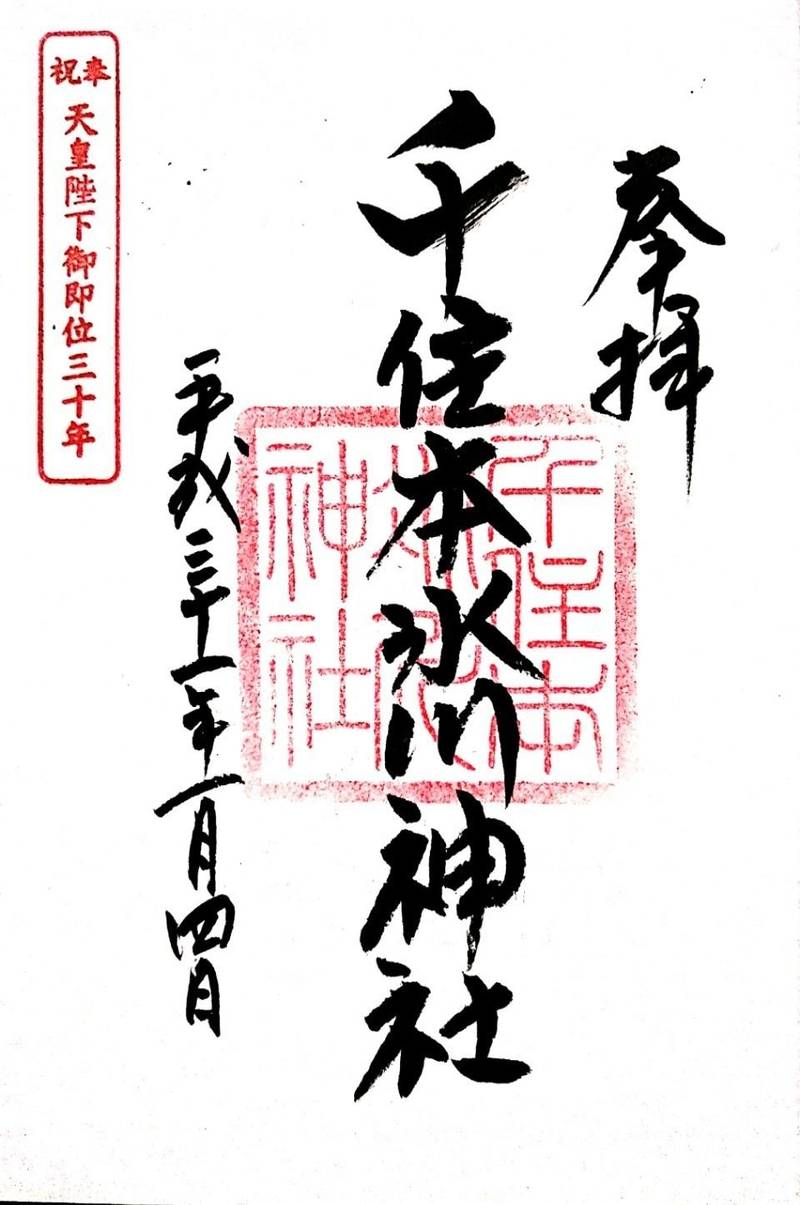 奉拝
千住本氷川神社
千住本
氷川
神社
平成三十一年一月四日
奉祝
天皇陛下御即位三十年